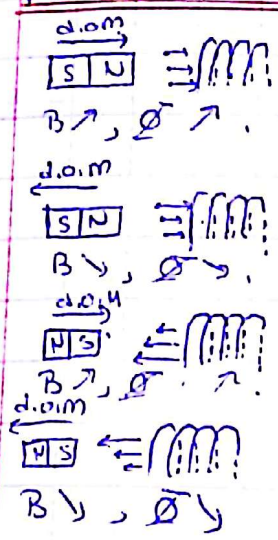 d.o.m
S N
B ↗, Ø ↗.
d.o.m
S N
B ↘, Ø ↘.
d.o.M
N S
B ↗, Ø ↗.
d.o.m
N S
B ↘, Ø ↘